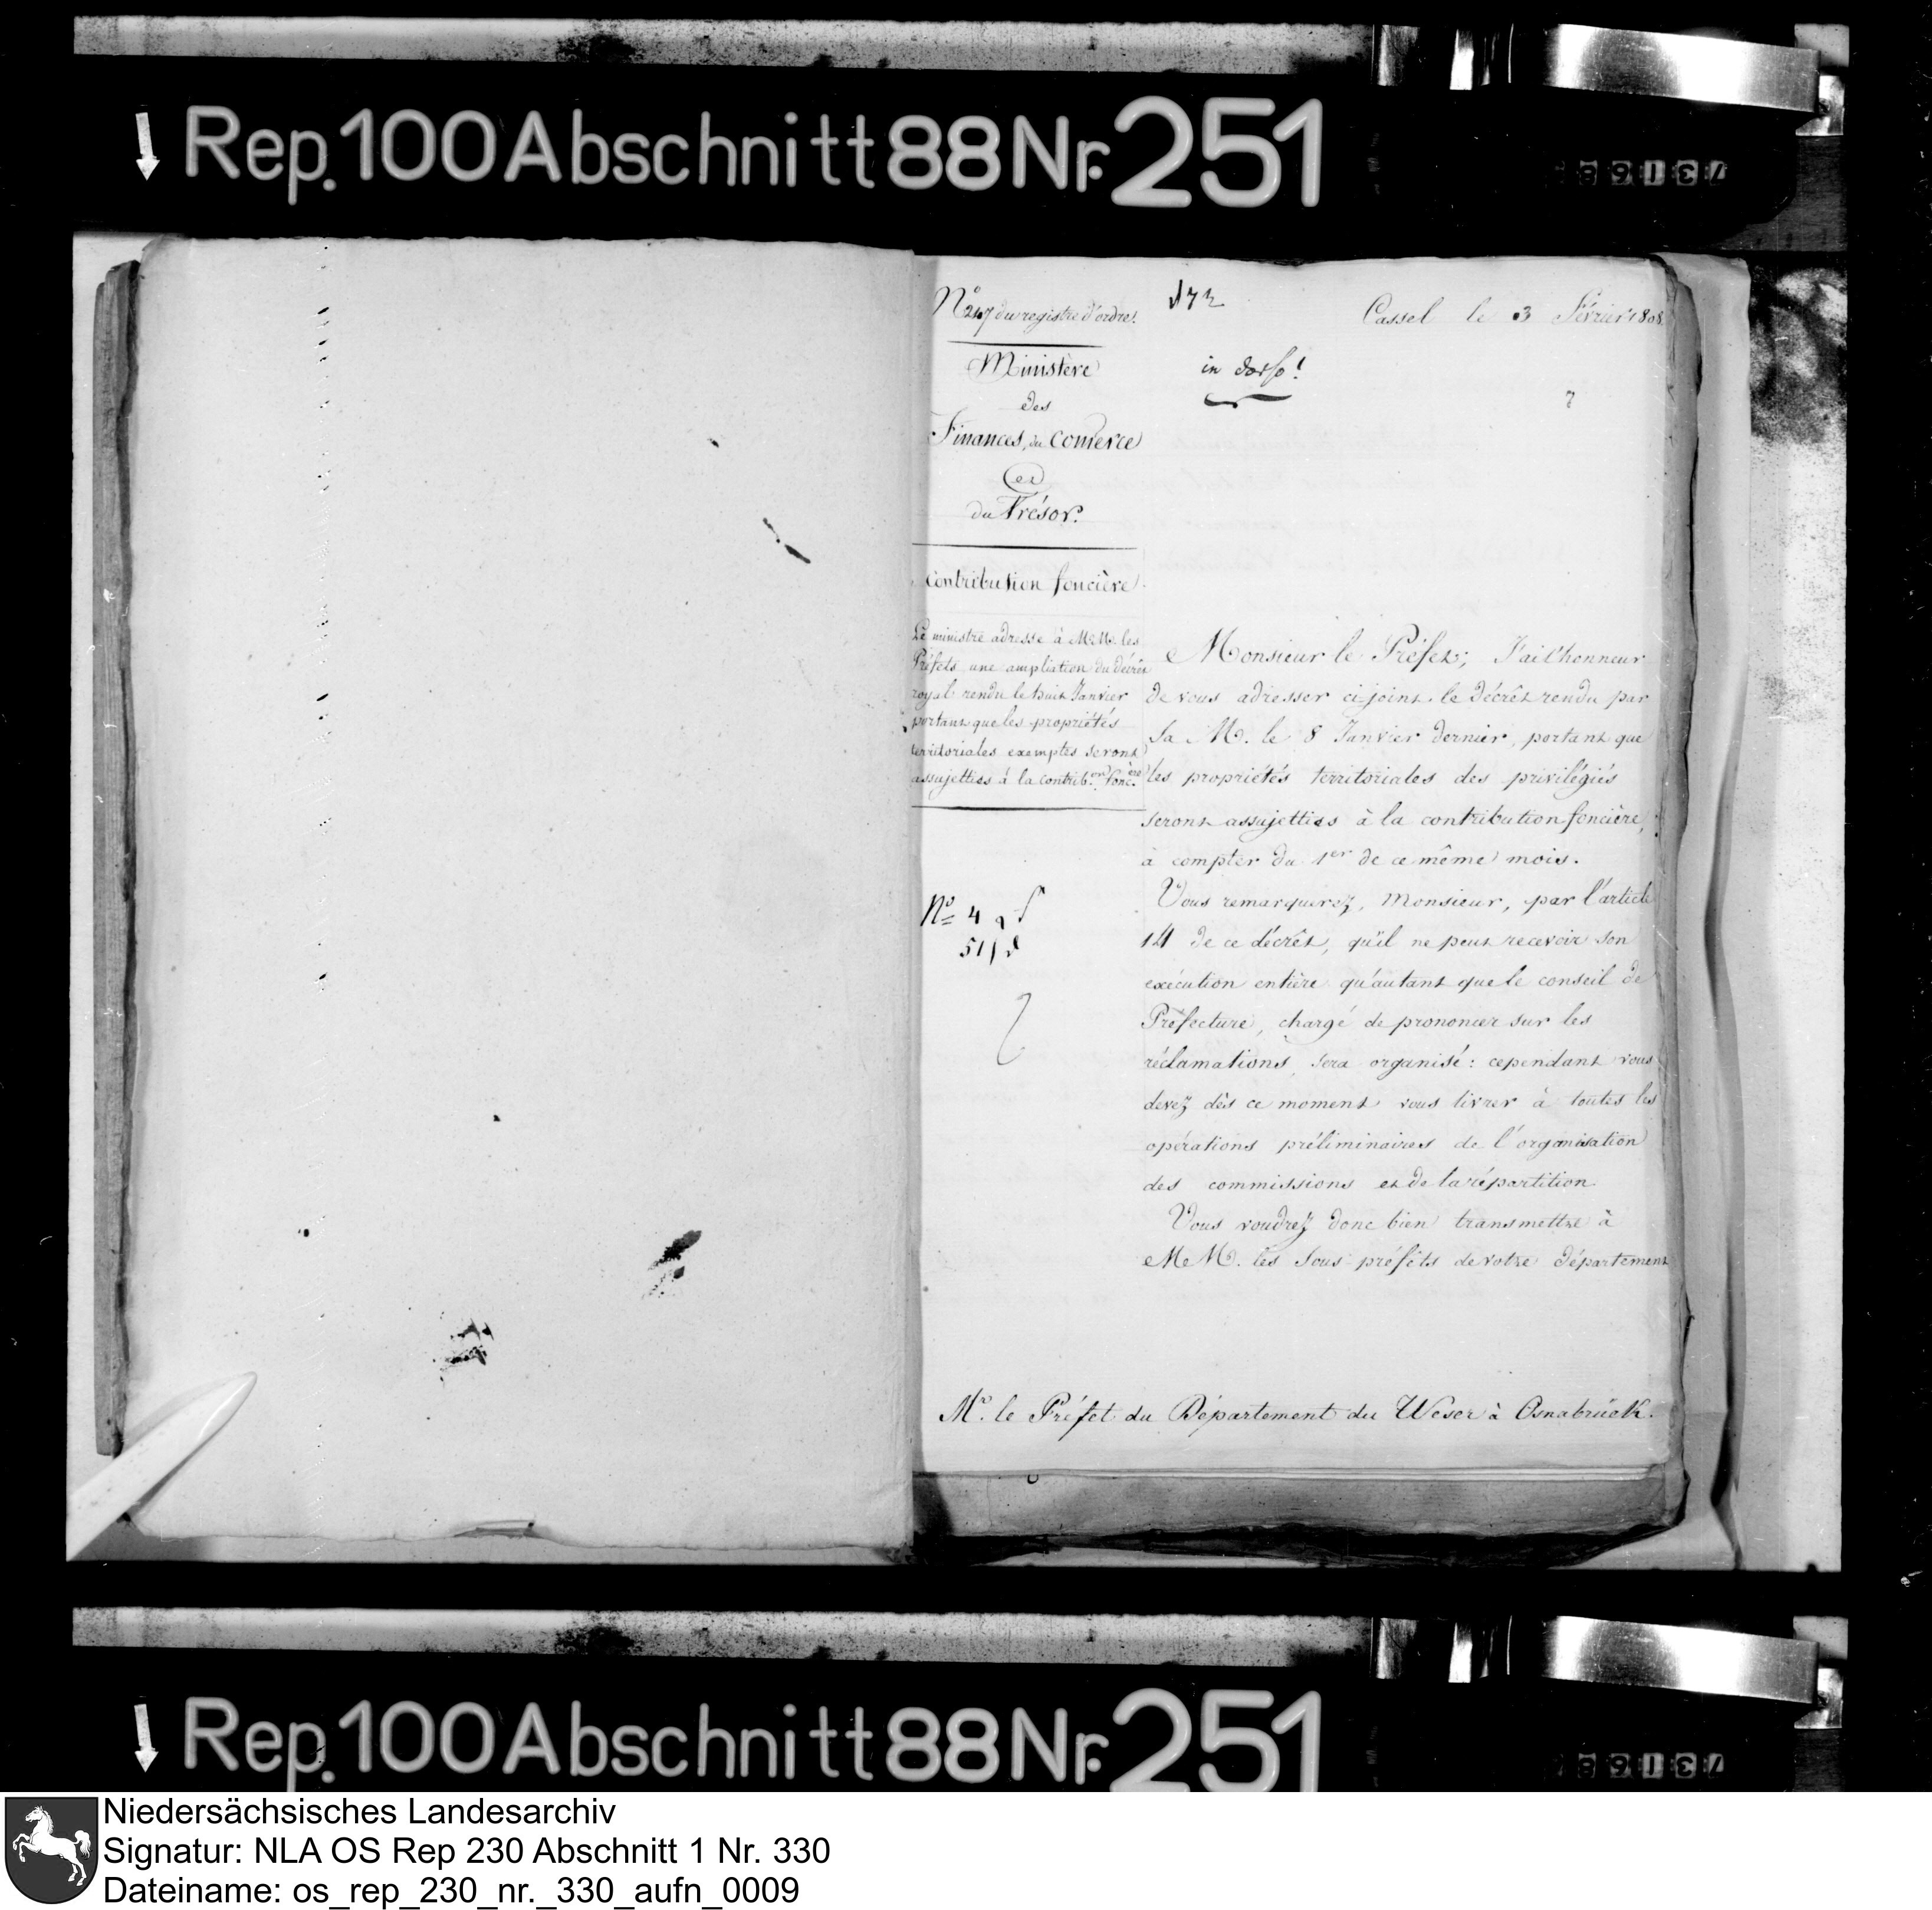 Rep. 100 Abschnitt 88 Nr. 251
73168
N.º 247 du registre d'ordre.
172
Cassel le 3 Février 1808
Ministère
des
Finances, du Comerce
et
du Trésor.
in dorso!
7
Contribution foncière
Le ministre adresse à M.M. les
Préfets une ampliation du décrêt
royal rendu le huit Janvier
portant que les propriétés
territoriales exemptes seront
assujetties à la contrib.on fonc.ère
Nº 4
51
Monsieur le Préfet; J'ai l'honneur
de vous adresser ci-joint le décrêt rendu par
Sa M. le 8 Janvier dernier, portant que
les propriétés territoriales des privilégiés
seront assujetties à la contribution foncière,
à compter du 1er de ce même mois.
Vous remarquerez, Monsieur, par l'article
14 de ce décrêt, qu'il ne peut recevoir son
exécution entière qu'autant que le conseil de
Préfecture, chargé de prononcer sur les
réclamations, sera organisé: cependant vous
devez dès ce moment vous livrer à toutes les
opérations préliminaires de l'organisation
des commissions et de la répartition.
Vous voudrez donc bien transmettre à
M.M. les Sous-préfèts de votre département
Mr. le Préfet du Département du Weser à Osnabrück.
Rep. 100 Abschnitt 88 Nr. 251
73168
Niedersächsisches Landesarchiv
Signatur: NLA OS Rep 230 Abschnitt 1 Nr. 330
Dateiname: os_rep_230_nr._330_aufn_0009